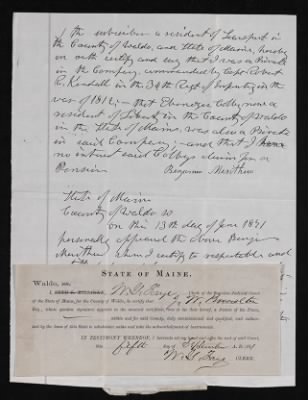 I the subscriber a resident of Searsport in
the County of Waldo, and State of Maine, hereby
on oath certify and say that I was a Private
in the Company, commanded by Capt Robert
R. Kendall in the 34th Regt of Infantry in the
war of 1812;— that Ebenezer Colby now a
resident of Liberty in the County of Waldo
in the State of Maine, was also a Private
in said Company; and that I have
no interest said Colbys claim for a
Pension
Benjamin Merithew
State of Maine
County of Waldo ss
on this 13th day of June 1871
personally appeared the above Benja
Merithew whom I certify to respectable and
STATE OF MAINE.
Waldo, ss.
I, W. G. Frye, Clerk of the Supreme Judicial Court
of the State of Maine, for the County of Waldo, do certify that
Esq., whose genuine signature appears to the annexed
within and for said County, duly commissioned and qualified, and author-
ized by the laws of this State to administer oaths and take the acknowledgment of instruments.
IN TESTIMONY WHEREOF, I hereunto set my hand and the seal of said Court,
this fifth day of September A. D. 1871
W. G. Frye CLERK.